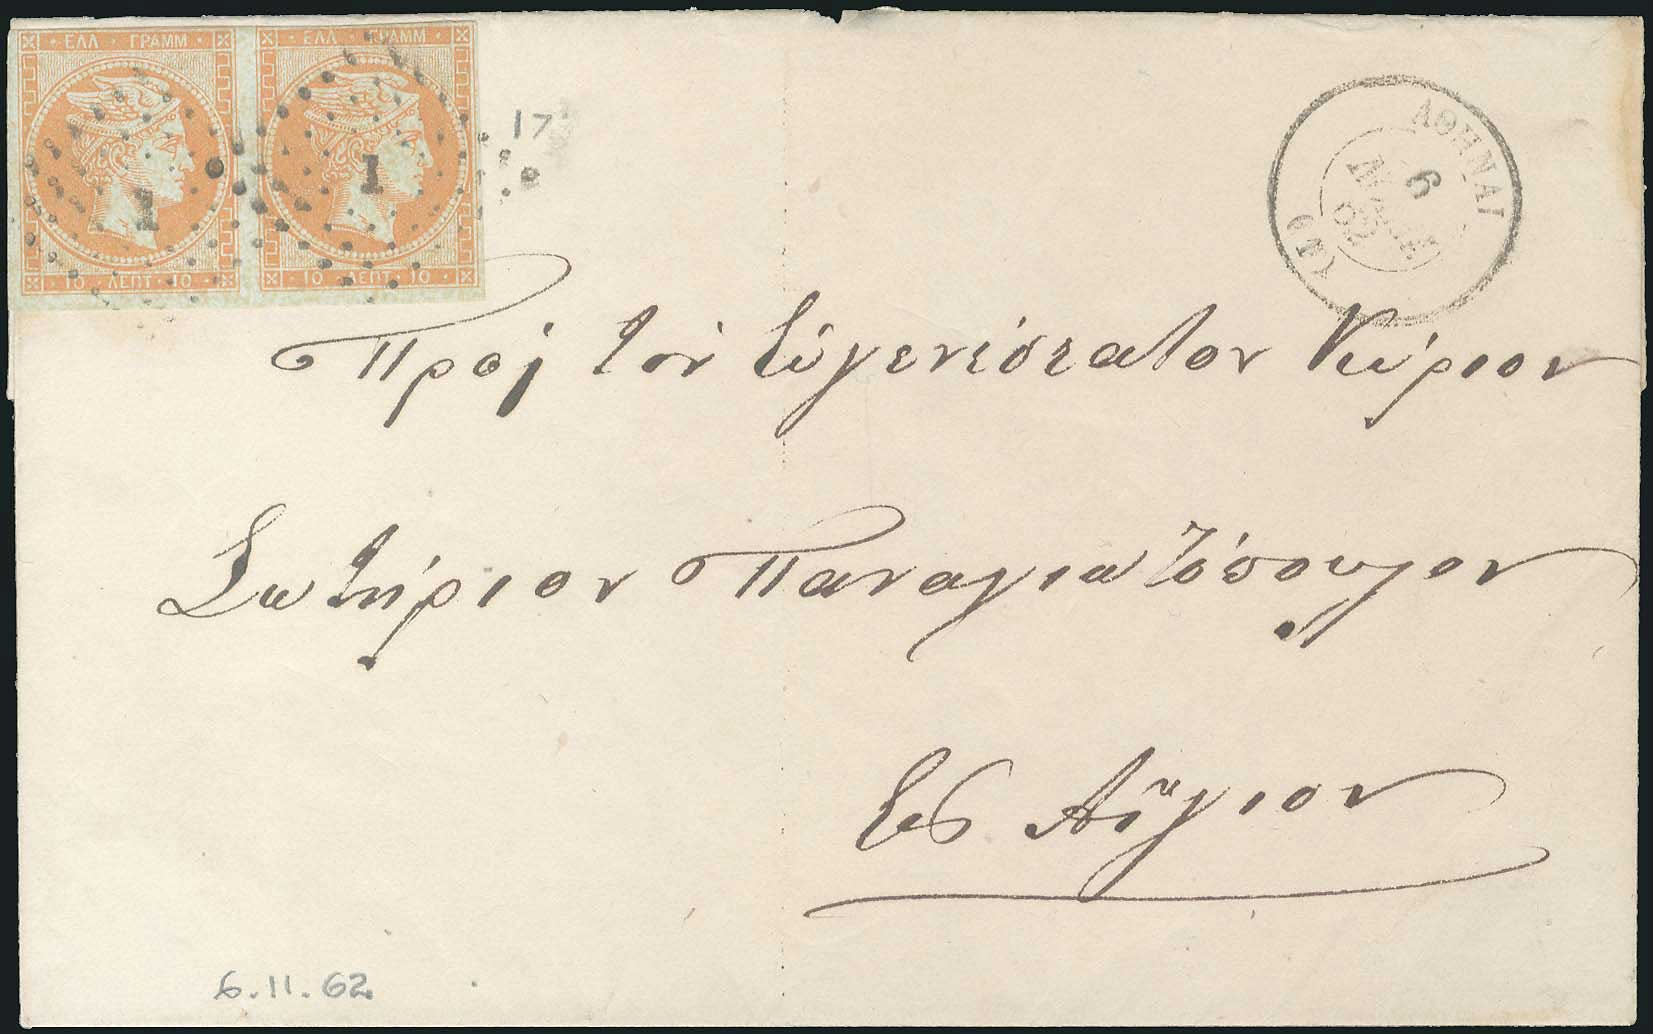 ΕΛΛ · ΓΡΑΜΜ
ΕΛΛ · ΓΡΑΜΜ
1
1
10 · ΛΕΠΤ · 10
10 · ΛΕΠΤ · 10
17
ΑΘΗΝΑΙ
6
62
(1)
Πρὸς τὸν Εὐγενέστατον Κύριον
Σωτήριον Παναγιωτόπουλον
Εἰς Αἴγιον
6.11.62